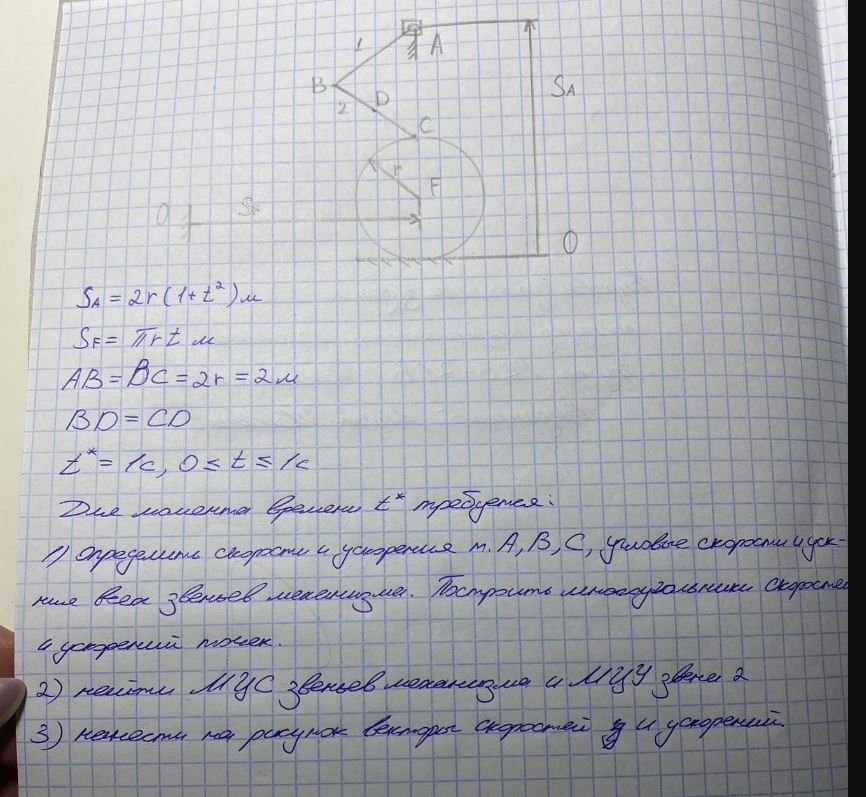 1
A
B
2
D
C
SA
r
F
O
SF
O
SA = 2r(1+t²)м
SF = πrt м
AB = BC = 2r = 2м
BD = CD
t* = 1с, 0 ≤ t ≤ 1с
Для момента времени t* требуется:
1) Определить скорости и ускорения т. A, B, C, угловые скорости и уск-
ния всех звеньев механизма. Построить многоугольники скоростей
и ускорений точек.
2) найти МЦС звеньев механизма и МЦУ звена 2
3) нанести на рисунок векторы скоростей и ускорений.